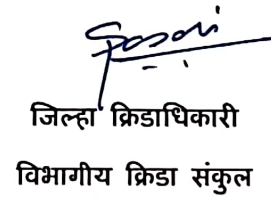 जिल्हा क्रिडाधिकारी
विभागीय क्रिडा संकुल